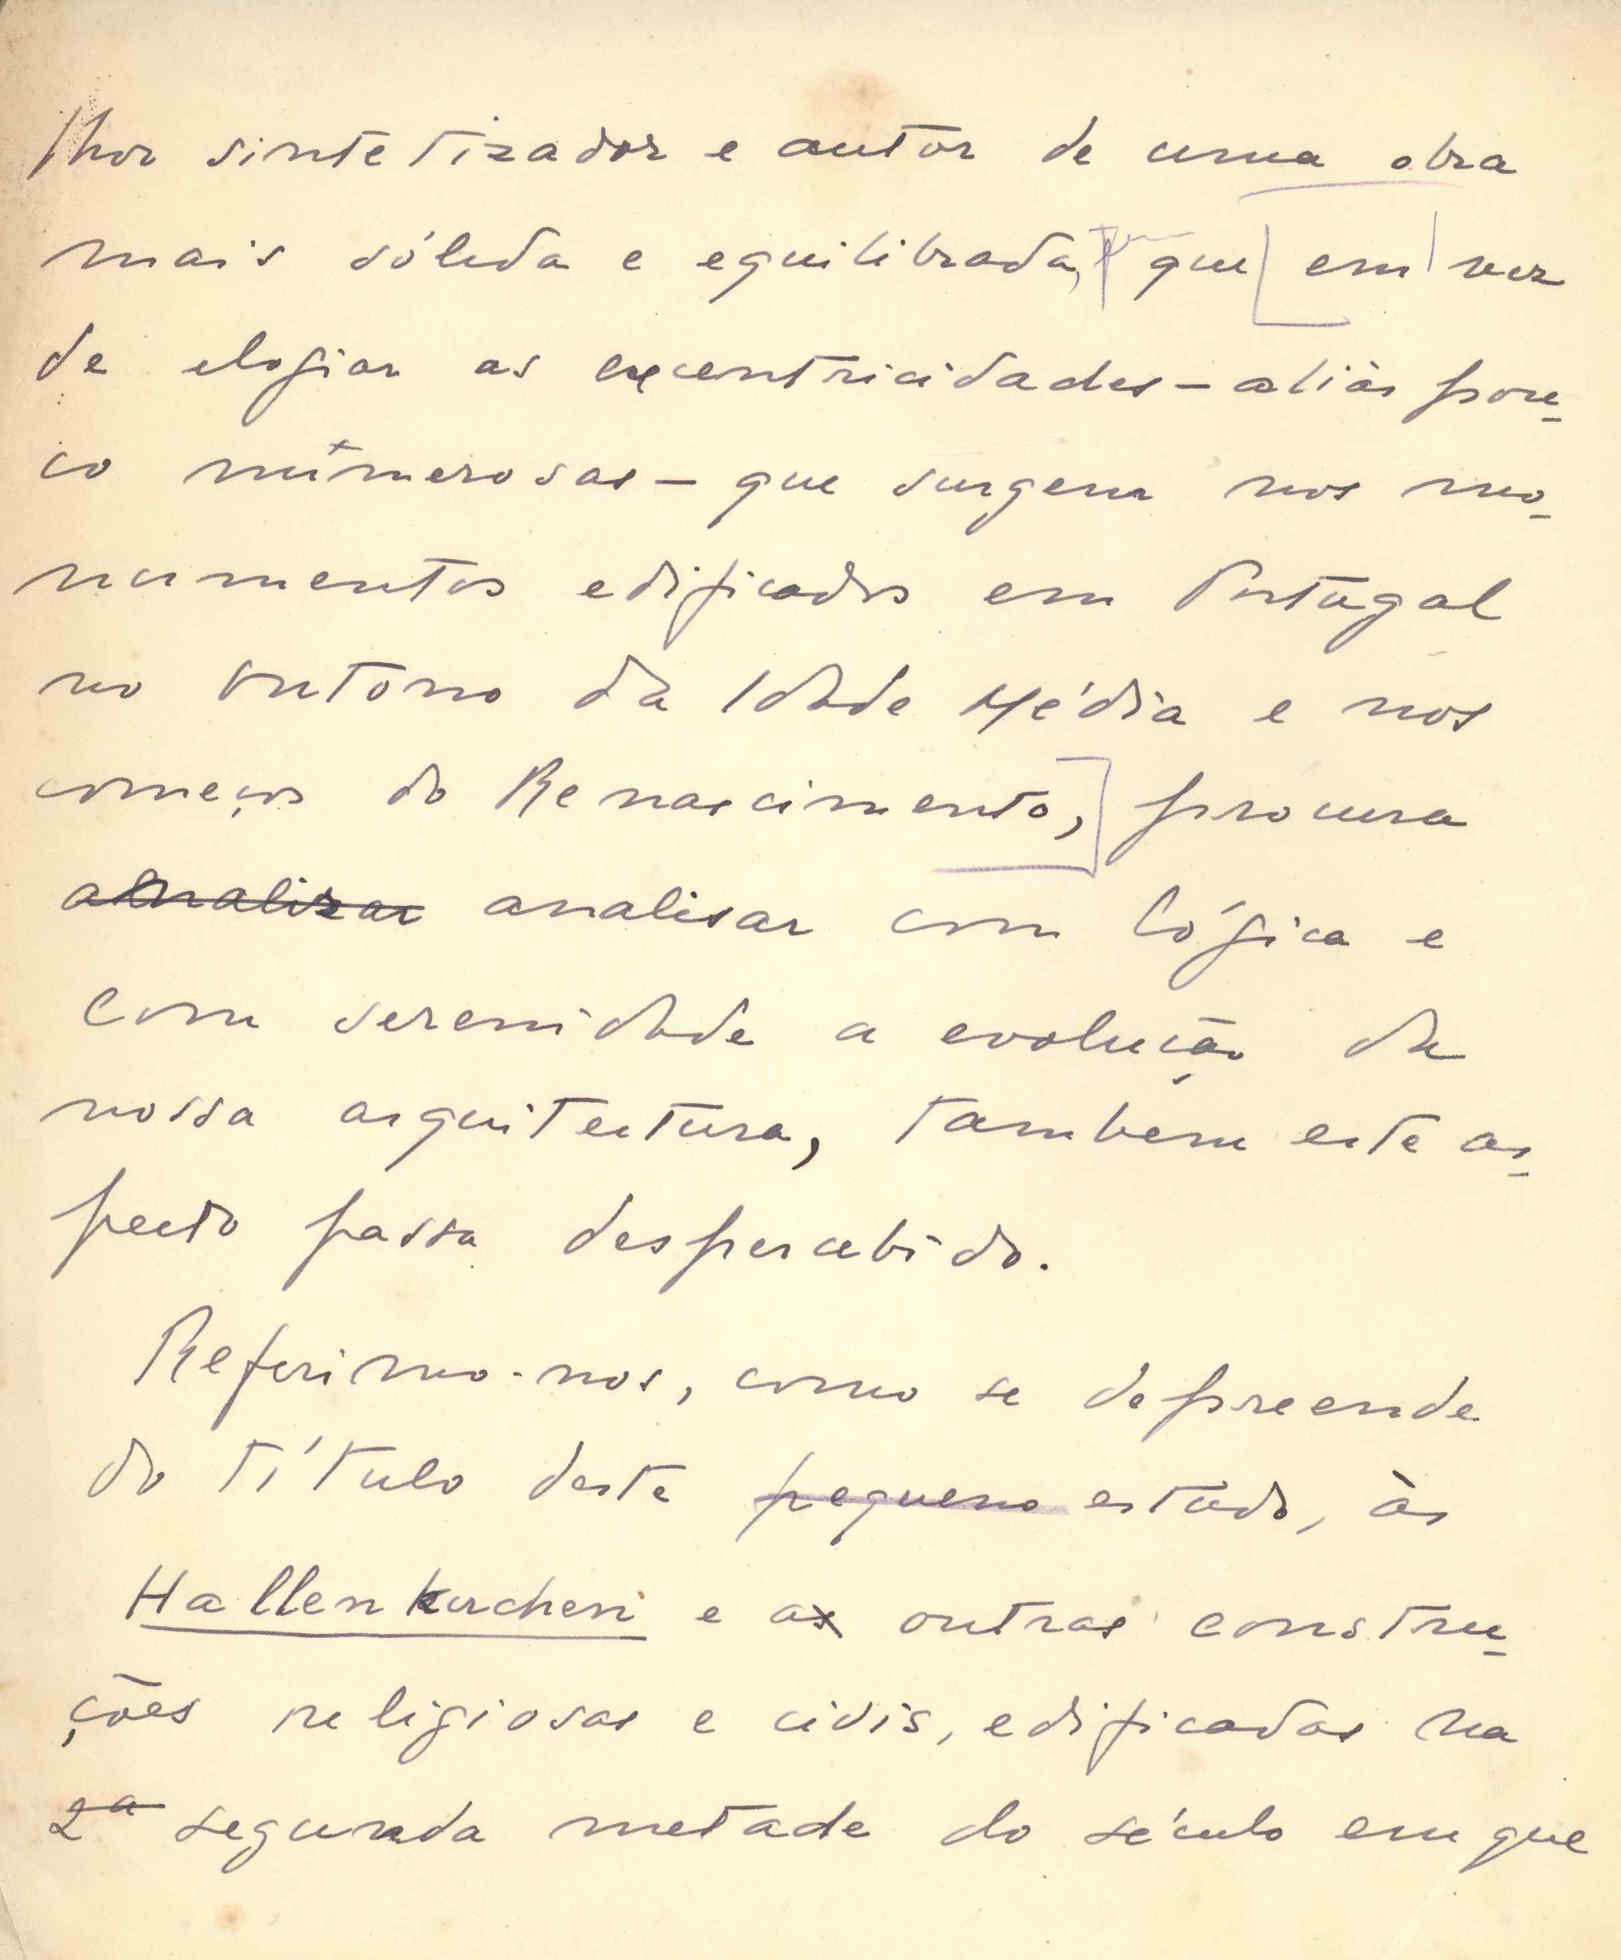 lhor sintetizador e autor de uma obra
mais sólida e equilibrada, que em vez
de elogiar as excentricidades — aliás pou-
co númerosas — que surgem nos mo-
numentos edificados em Portugal
no outono da Idade Média e nos
começos do Renascimento, procura
analizar analisar com lógica e
com serenidade a evolução da
nossa arquitectura, tambem este as-
pecto passa despercebido.
Referimo-nos, como se depreende
do título deste pequeno estudo, às
Hallenkirchen e as outras constru-
ções religiosas e civis, edificadas na
2ª segunda metade do século em que